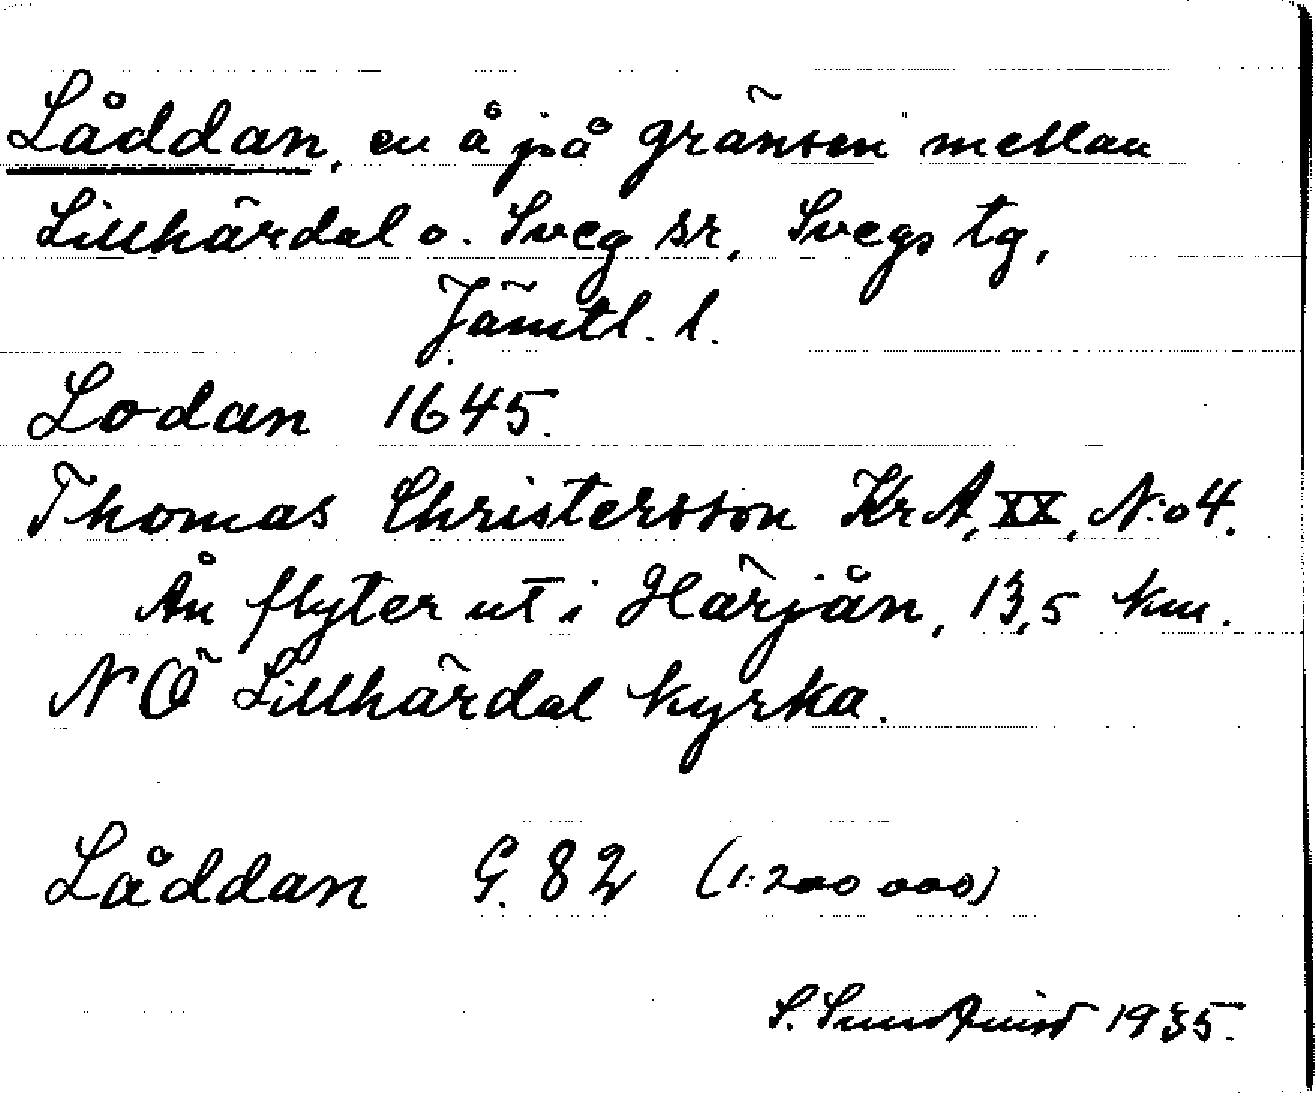 Låddan, en å på gränsen mellan
Lillhärdal o. Sveg sr, Svegs tg,
Jämtl. l.
Lodan 1645.
Thomas Christersson Kr A, XX, N:o 4.
Ån flyter ut i Härjån, 13,5 km.
NÖ Lillhärdal kyrka.
Låddan G. 82 (1:200 000)
S. Sundquist 1935.